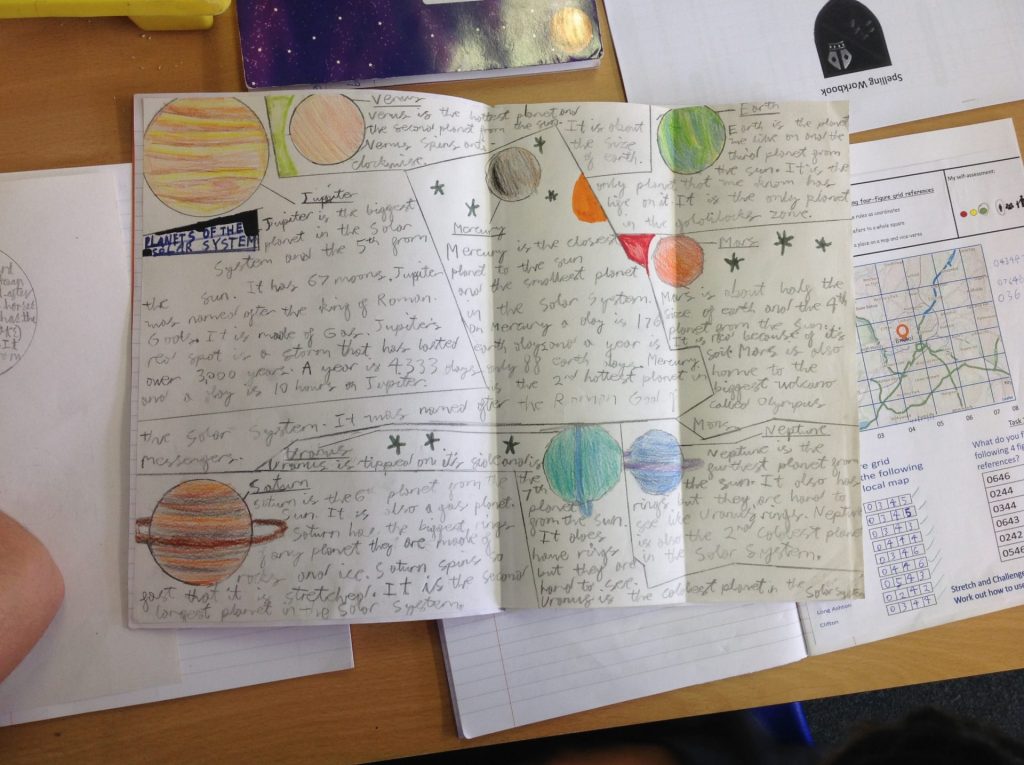 Spelling Workbook
Venus
Venus is the hottest planet and
the second planet from the sun.
Venus spins anti-
clockwise.
It is about
the size
of earth.
Jupiter
PLANETS OF THE
SOLAR SYSTEM
Jupiter is the biggest
planet in the Solar
System and the 5th from
the sun. It has 67 moons. Jupiter
was named after the king of Roman
Gods. It is made of Gas. Jupiter's
red spot is a storm that has lasted
over 3,000 years. A year is 4333 days
and a day is 10 hours on Jupiter.
Mercury
Mercury is the closest
planet to the sun
and the smallest planet
in the Solar System.
on Mercury a day is 176
earth days and a year is
only 88 earth days. Mercury
is the 2nd hottest planet in
the Solar System. It was named after the Roman God
Messengers.
Earth
Earth is the planet
we live on and the
third planet from
the sun. It is the
only planet that we know has
life on it. It is the only planet
in the goldilocks zone.
Mars
Mars is about half the
size of earth and the 4th
planet from the Sun.
It is red because of it's
soil. Mars is also
home to the
biggest volcano
called Olympus
Mons.
Uranus
Uranus is tipped on its side and is
the 7th
planet
from the sun.
It does
have rings
but they are
hard to see.
Uranus is the coldest planet in the Solar System
Saturn
Saturn is the 6th planet from the
Sun. It is also a gas planet.
Saturn has the biggest rings
of any planet they are made of
rocks and ice. Saturn spins so
fast that it is stretched. It is the second
largest planet in the Solar System.
Neptune
Neptune is the
furthest planet from
the sun. It also has
rings but they are hard to
see like Uranus' rings. Neptune
is also the 2nd Coldest planet
in the Solar System.
My self-assessment:
ing four-figure grid references
03 04 05 06 07 08
re grid
the following
local map
0345
0345
0444
0346
0543
0242
0344
What do you f
following 4 fig
references?
0646
0244
0344
0643
0242
0546
Stretch and Challenge
Work out how to use
Long Ashton
Clifton